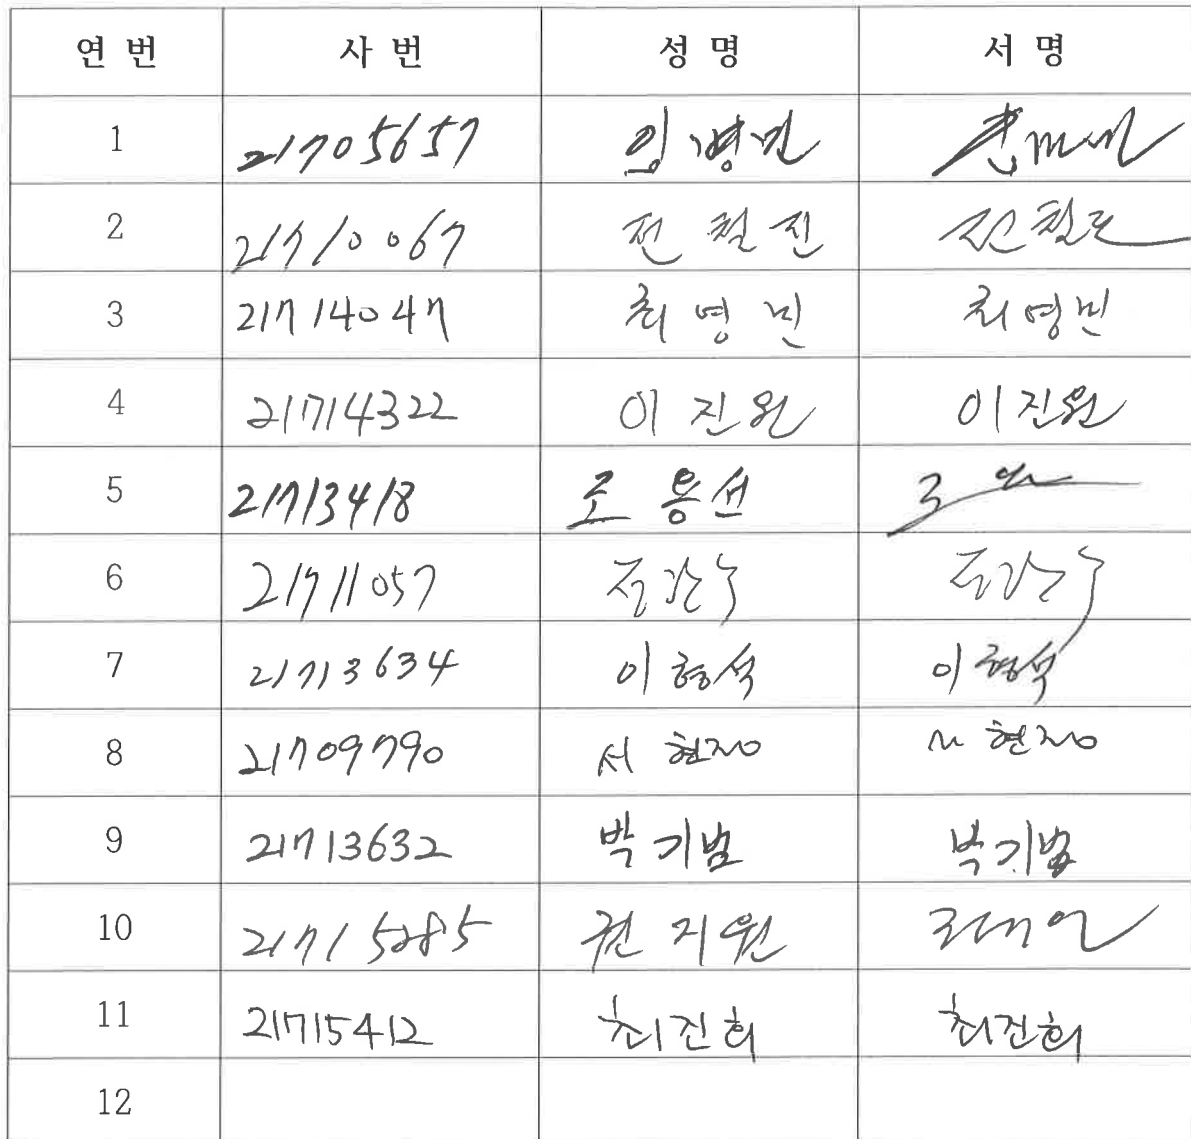 연 번 사 번 성 명 서 명
1 21705657 임병민
2 21710067 전철진 전철진
3 21714047 최영빈 최영빈
4 21714322 이진원 이진원
5 21713418 조용선
6 21711057
7 21713634 이형석 이형석
8 21709790 서현정 서현정
9 21713632 박기범 박기범
10 21715285 권지원
11 21715412 최진희 최진희
12